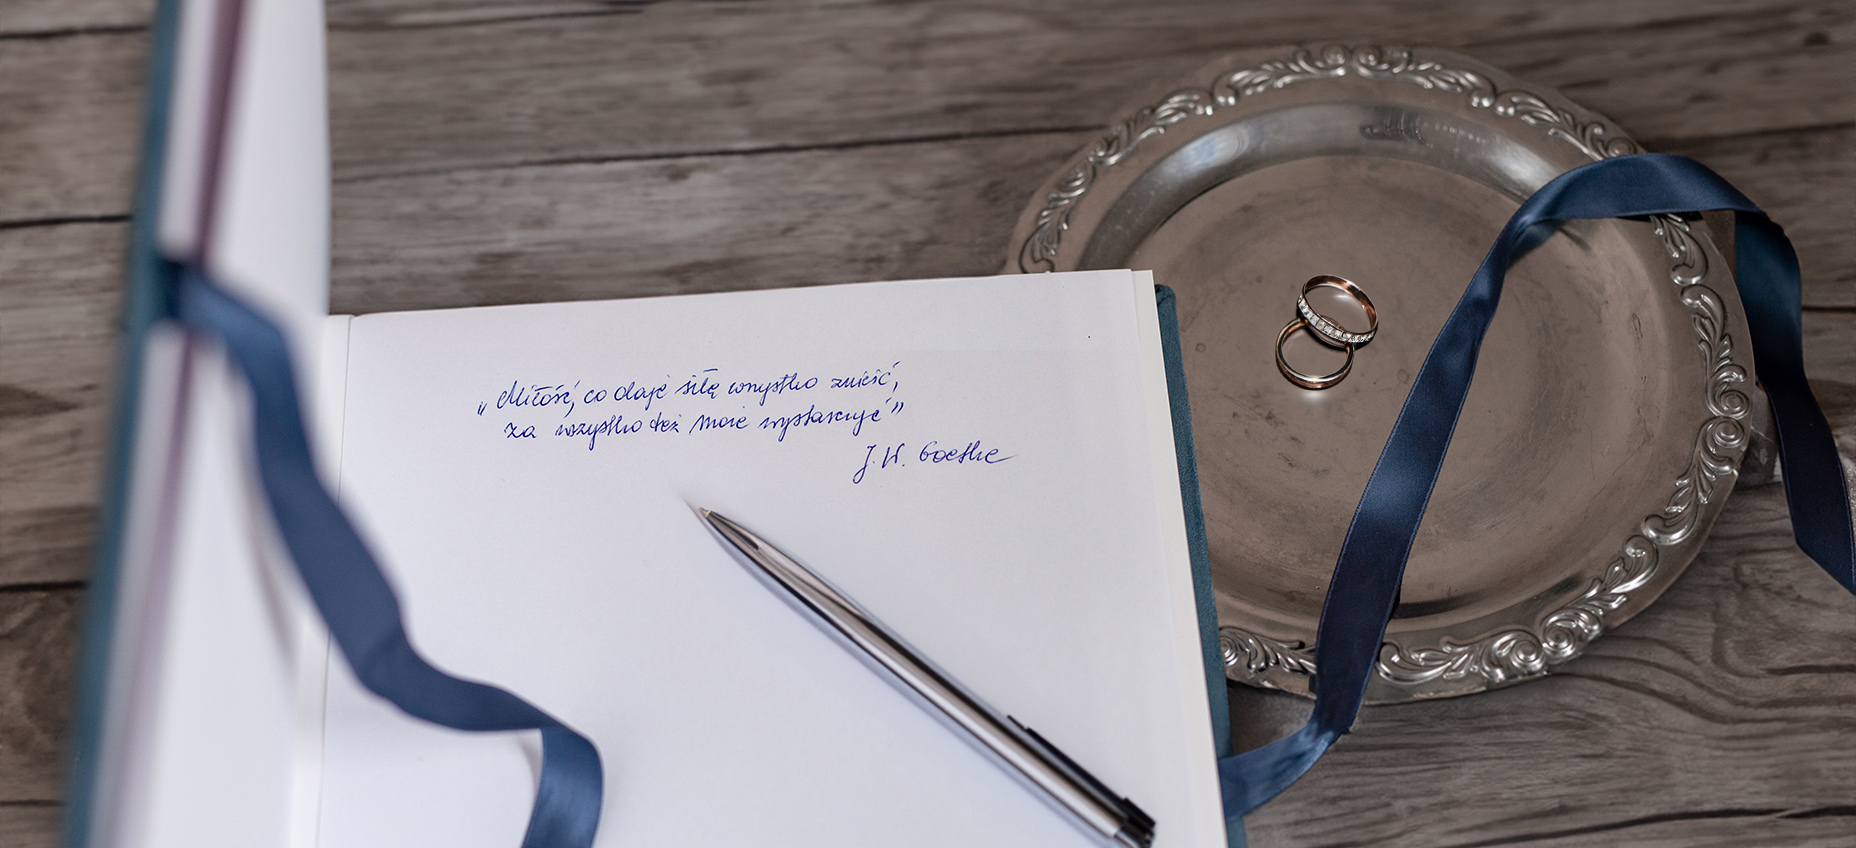 „Miłość, co daje siłę wszystko znieść,
za wszystko też może wystarczyć”
J. W. Goethe